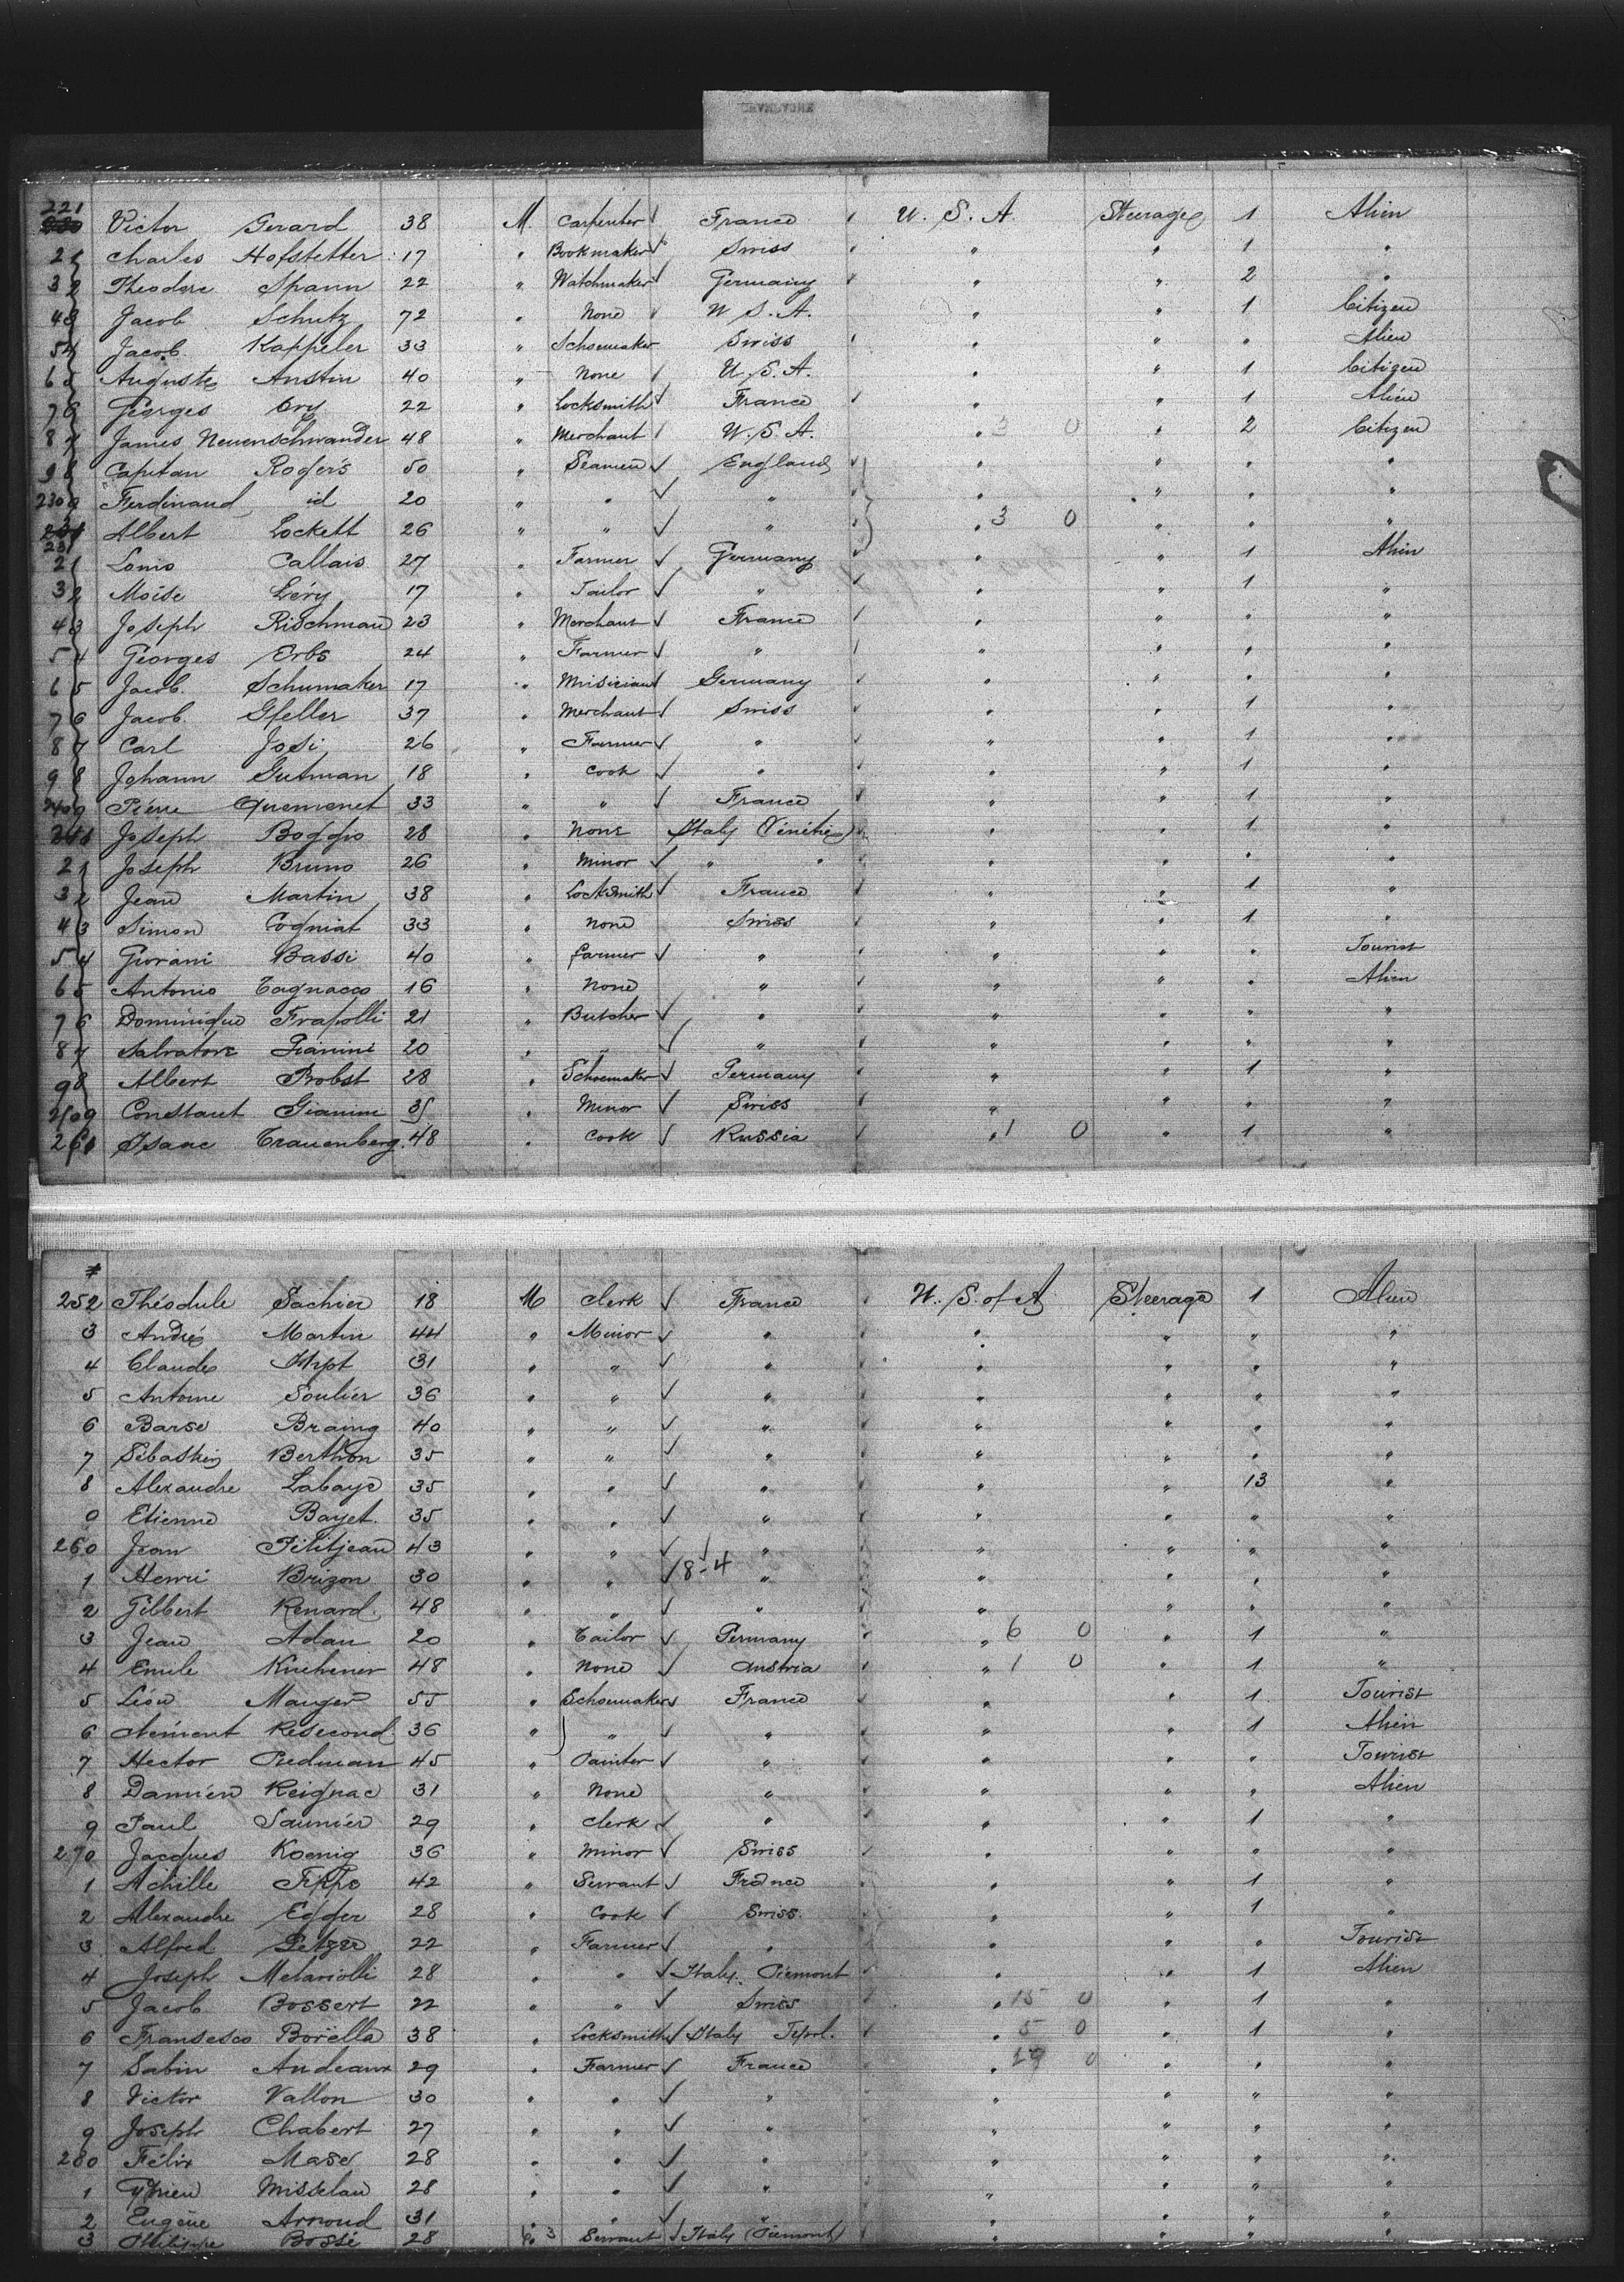 221 Victor Gerard 38 M. Carpenter France U. S. A. Steerage 1 Alien
2 Charles Hofstetter 17 " Bookmaker Swiss " " 1 "
3 Theodore Spann 22 " Watchmaker Germany " " 2 "
4 Jacob Schutz 72 " None U S. A. " " 1 Citizen
5 Jacob Kappeler 33 " Schoemaker Swiss " " " Alien
6 Auguste Austin 40 " None U. S. A. " " 1 Citizen
7 Georges Cry 22 " Locksmith France " " 1 Alien
8 James Neuenschwander 48 " Merchant U. S. A. " 3 0 " 2 Citizen
9 Capitan Roger's 50 " Seamen England " " " "
230 Ferdinand id 20 " " " " " " "
231 Albert Lockett 26 " " " " 3 0 " " "
2 Louis Callais 27 " Farmer Germany " " 1 Alien
3 Moïse Lévy 17 " Tailor " " " 1 "
4 Joseph Rischmann 23 " Merchant France " " " "
5 Georges Erbs 24 " Farmer " " " " "
6 Jacob Schumaker 17 " Musician Germany " " " "
7 Jacob Gfeller 37 " Merchant Swiss " " 1 "
8 Carl Josi 26 " Farmer " " " 1 "
9 Johann Gutman 18 " Cook " " " 1 "
240 Pierre Quemenet 33 " " France " " 1 "
241 Joseph Boggio 28 " None Italy (Vénétie) " " 1 "
2 Joseph Bruno 26 " Minor " " " " " "
3 Jean Martin 38 " Locksmith France " " 1 "
4 Simon Cogniat 33 " None Swiss " " 1 "
5 Giovani Bassi 40 " farmer " " " " Tourist
6 Antonio Tagnacco 16 " None " " " " Alien
7 Dominique Frapolli 21 " Butcher " " " " "
8 Salvatore Gianini 20 " " " " " " "
9 Albert Probst 28 " Schoemaker Germany " " 1 "
250 Constant Gianini 35 " Minor Swiss " " " "
251 Isaac Trauenberg 48 " Cook Russia " 1 0 " 1 "
252 Théodule Sachier 18 M Clerk France U. S. of A Steerage 1 Alien
3 André Martin 44 " Minor " " " " "
4 Claude 31 " " " " " " "
5 Antoine Soulier 36 " " " " " " "
6 Barse Braing 40 " " " " " " "
7 Sébastien Berthon 35 " " " " " " "
8 Alexandre Labaye 35 " " " " " 13 "
9 Etienne Bayet. 35 " " " " " " "
260 Jean Pititjean 43 " " " " " " "
1 Henri Brizon 30 " " 8-4 " " " " "
2 Gilbert Renard 48 " " " " " " "
3 Jean Adan 20 " Tailor Germany " 6 0 " 1 "
4 Emile Kuehener 48 " None Austria " 1 0 " 1 "
5 Léon Mauger 55 " Schoemaker France " " 1 Tourist
6 Clément Résecond 36 " " " " " 1 Alien
7 Hector Predman 45 " Painter " " " " Tourist
8 Damien Reignac 31 " None " " " " Alien
9 Paul Saunier 29 " Clerk " " " 1 "
270 Jacques Koenig 36 " Minor Swiss " " " "
1 Achille Fippo 42 " Servant France " " 1 "
2 Alexandre Egger 28 " Cook Swiss " " 1 "
3 Alfred Petzer 22 " Farmer " " " " Tourist
4 Joseph Melariolli 28 " " Italy. Piemont " " 1 Alien
5 Jacob Bossert 22 " " Swiss " 15 0 " 1 "
6 Fransesco Borëlla 38 " Locksmith Italy Tyrol. " 5 0 " 1 "
7 Sabin Andeaux 29 " Farmer France " 29 0 " " "
8 Victor Vallon 30 " " " " " " "
9 Joseph Chabert 27 " " " " " " "
280 Félix Mase 28 " " " " " " "
1 Misselau 28 " " " " " " "
2 Eugène Arnoud 31 " " " " " " "
3 Philippe Bossé 28 " 3 Servant Italy (Piemont) " " " "